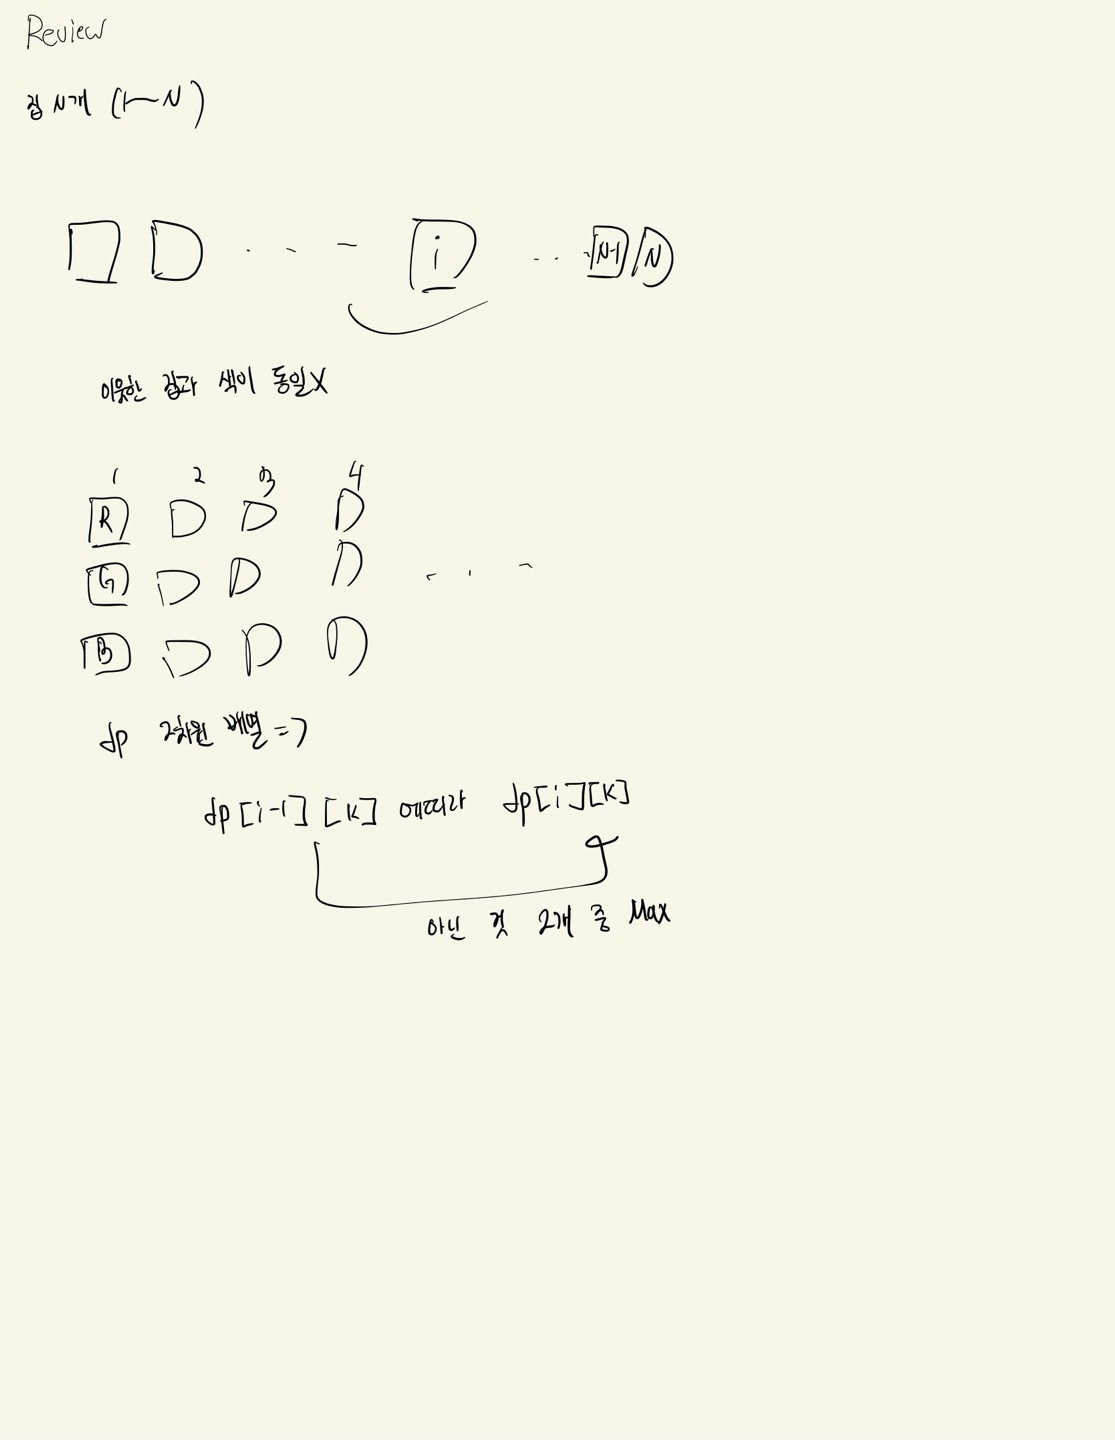 Review
집 N개 (1~N)
i N-1 N
이웃한 집과 색이 동일X
1 2 3 4
R
G
B
dp 2차원 배열 =>
dp[i-1][K] 에따라 dp[i][K]
아닌 것 2개 중 Max